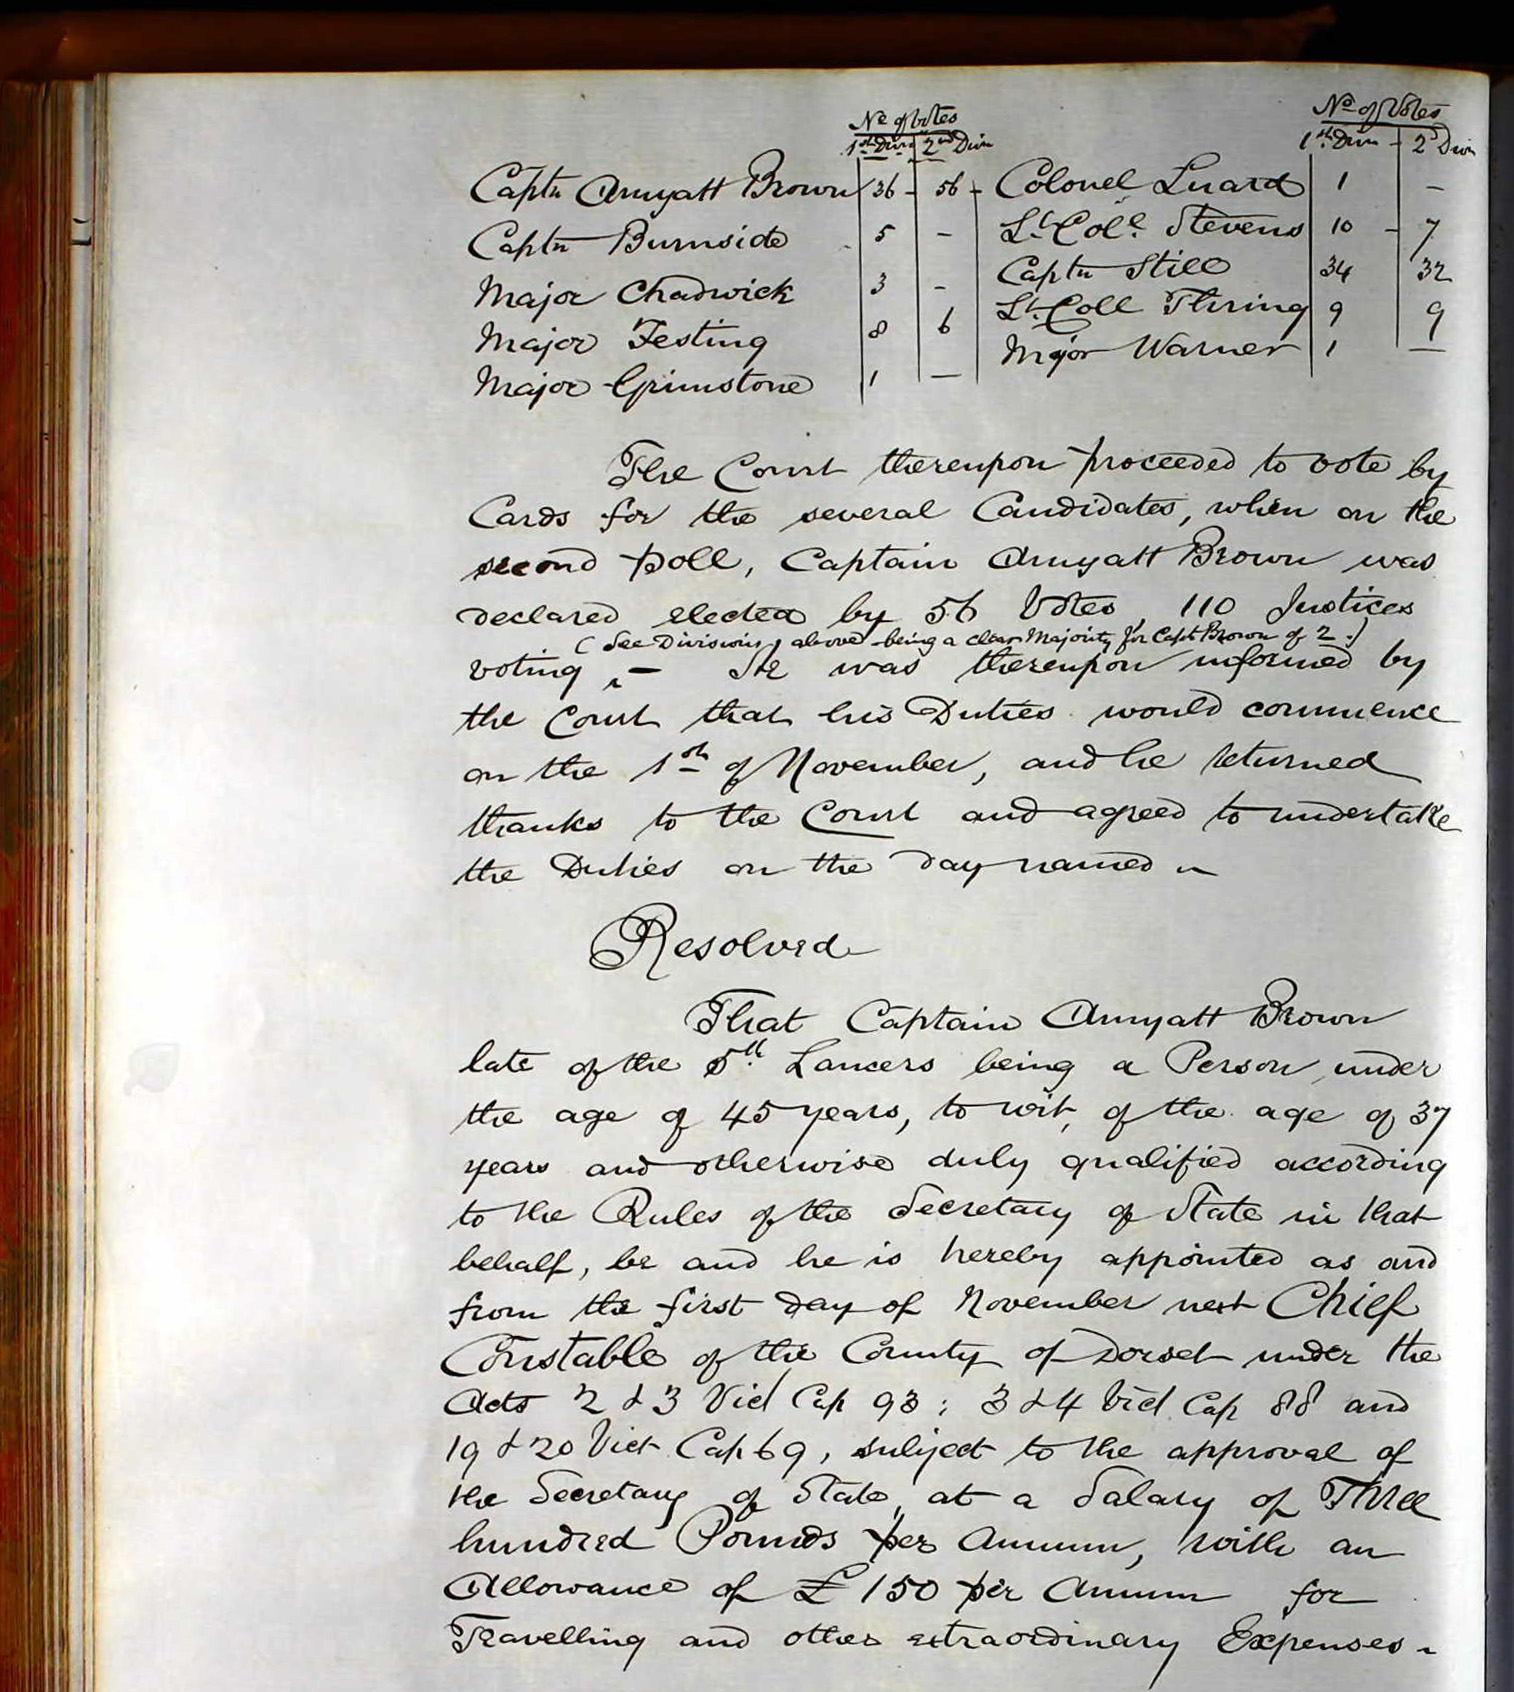 No of Votes No of Votes
1st Divn 2nd Divn 1st Divn - 2d Divn
Captn Amyatt Brown 36 - 56 - Colonel Luard 1 -
Captn Burnside 5 - Lt Coll. Stevens 10 - 7
Major Chadwick 3 - Captn Still 34 32
Major Festing 8 6 Lt. Coll Thring 9 9
Major Grimstone 1 — Major Warner 1 —
The Court thereupon proceeded to vote by
Cards for the several Candidates, when on the
second poll, Captain Amyatt Brown was
declared elected by 56 Votes, 110 Justices
(See Divisions above being a clear Majority for Capt Brown of 2.)
voting — He was thereupon informed by
the Court that his Duties would commence
on the 1st of November, and he returned
thanks to the Court and agreed to undertake
the Duties on the day named ~
Resolved
That Captain Amyatt Brown
late of the 5th Lancers being a Person under
the age of 45 years, to wit, of the age of 37
years and otherwise duly qualified according
to the Rules of the Secretary of State in that
behalf, be and he is hereby appointed as and
from the first day of November next Chief
Constable of the County of Dorset under the
Acts 2 & 3 Vict Cap 93; 3 & 4 Vict Cap 88 and
19 & 20 Vict Cap 69, subject to the approval of
the Secretary of State, at a Salary of Three
hundred Pounds per Annum, with an
Allowance of £150 per Annum for
Travelling and other extraordinary Expenses ~